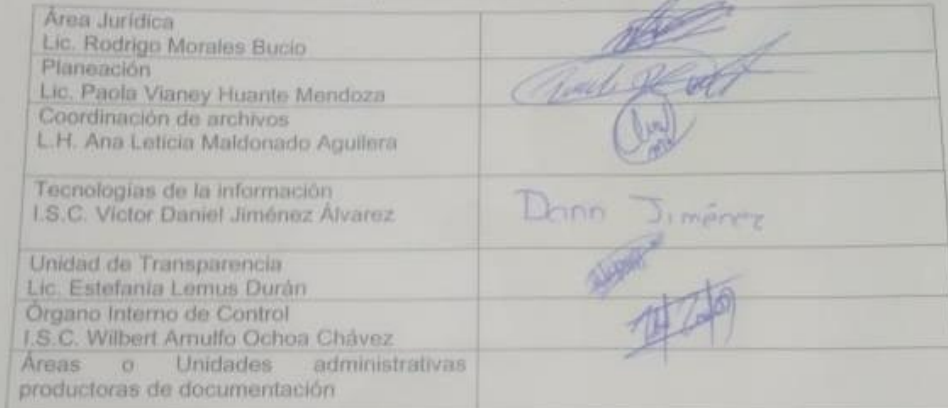 Área Jurídica
Lic. Rodrigo Morales Bucio
Planeación
Lic. Paola Vianey Huante Mendoza
Coordinación de archivos
L.H. Ana Leticia Maldonado Aguilera
Tecnologías de la información
I.S.C. Victor Daniel Jiménez Álvarez
Dann Jiménez
Unidad de Transparencia
Lic. Estefanía Lemus Durán
Órgano Interno de Control
I.S.C. Wilbert Arnulfo Ochoa Chávez
Áreas o Unidades administrativas
productoras de documentación